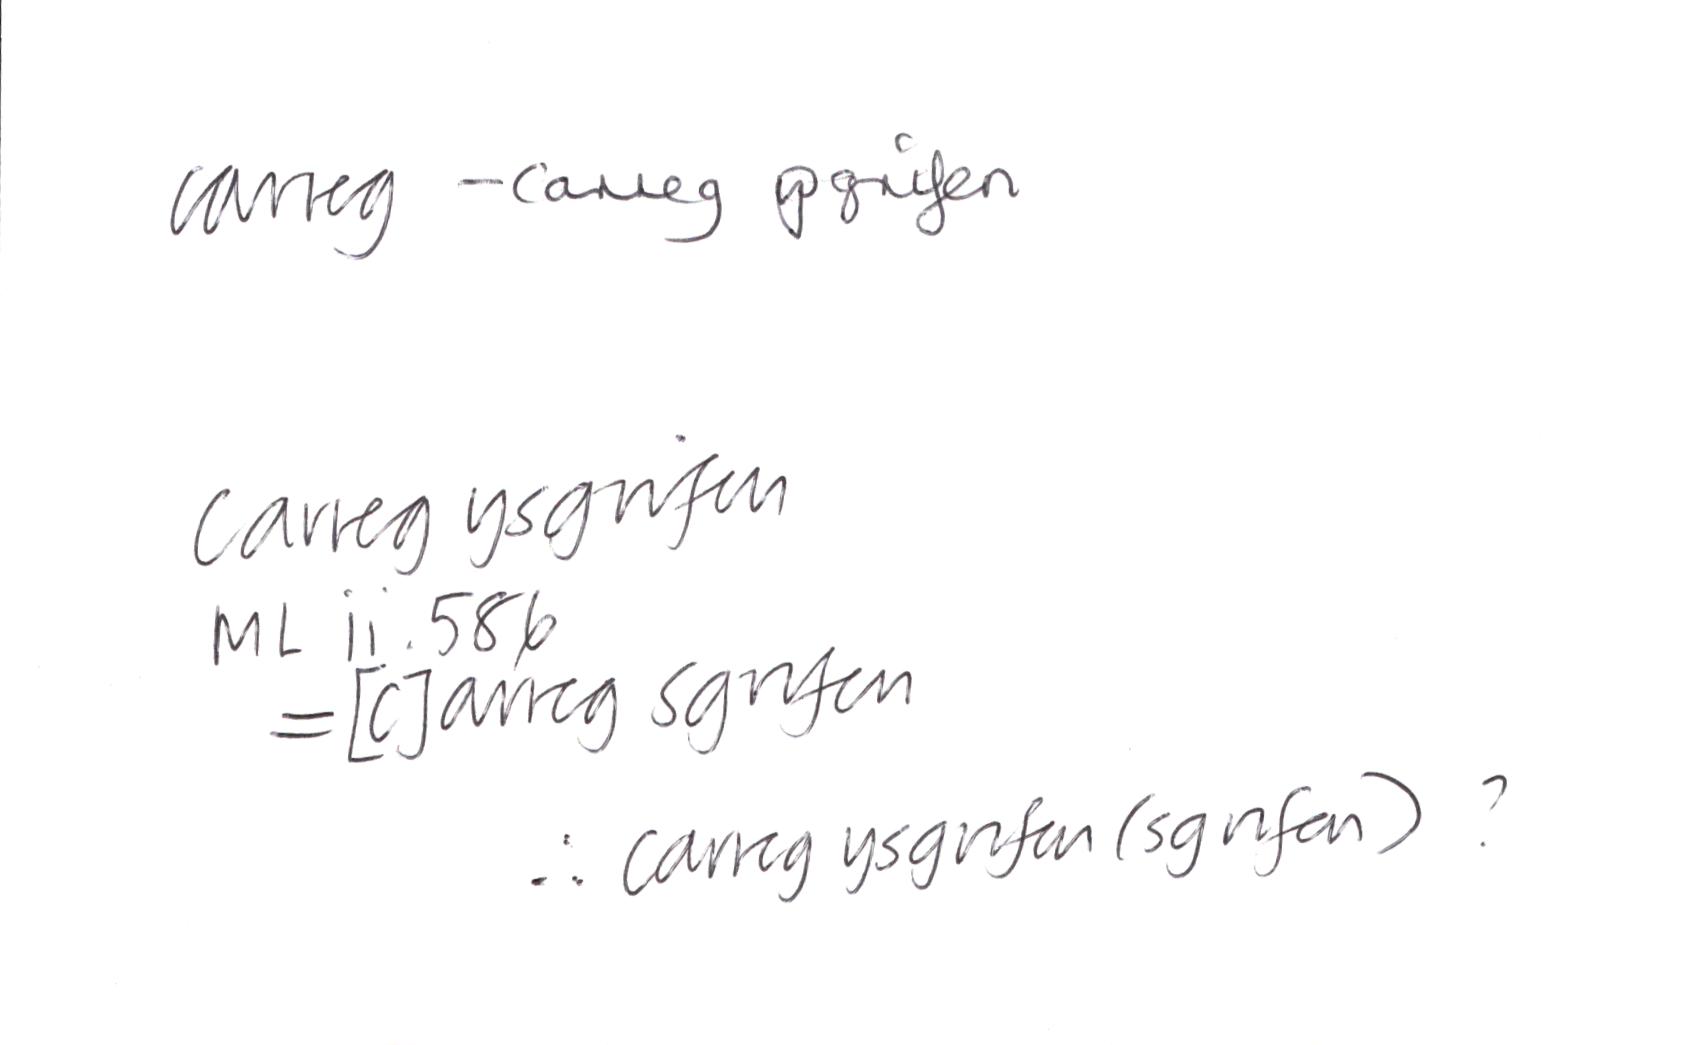 carreg - carreg ysgrifen
Carreg ysgrifen
ML ii. 586
= [C]arreg sgrifen
∴ carreg ysgrifen (sgrifen) ?